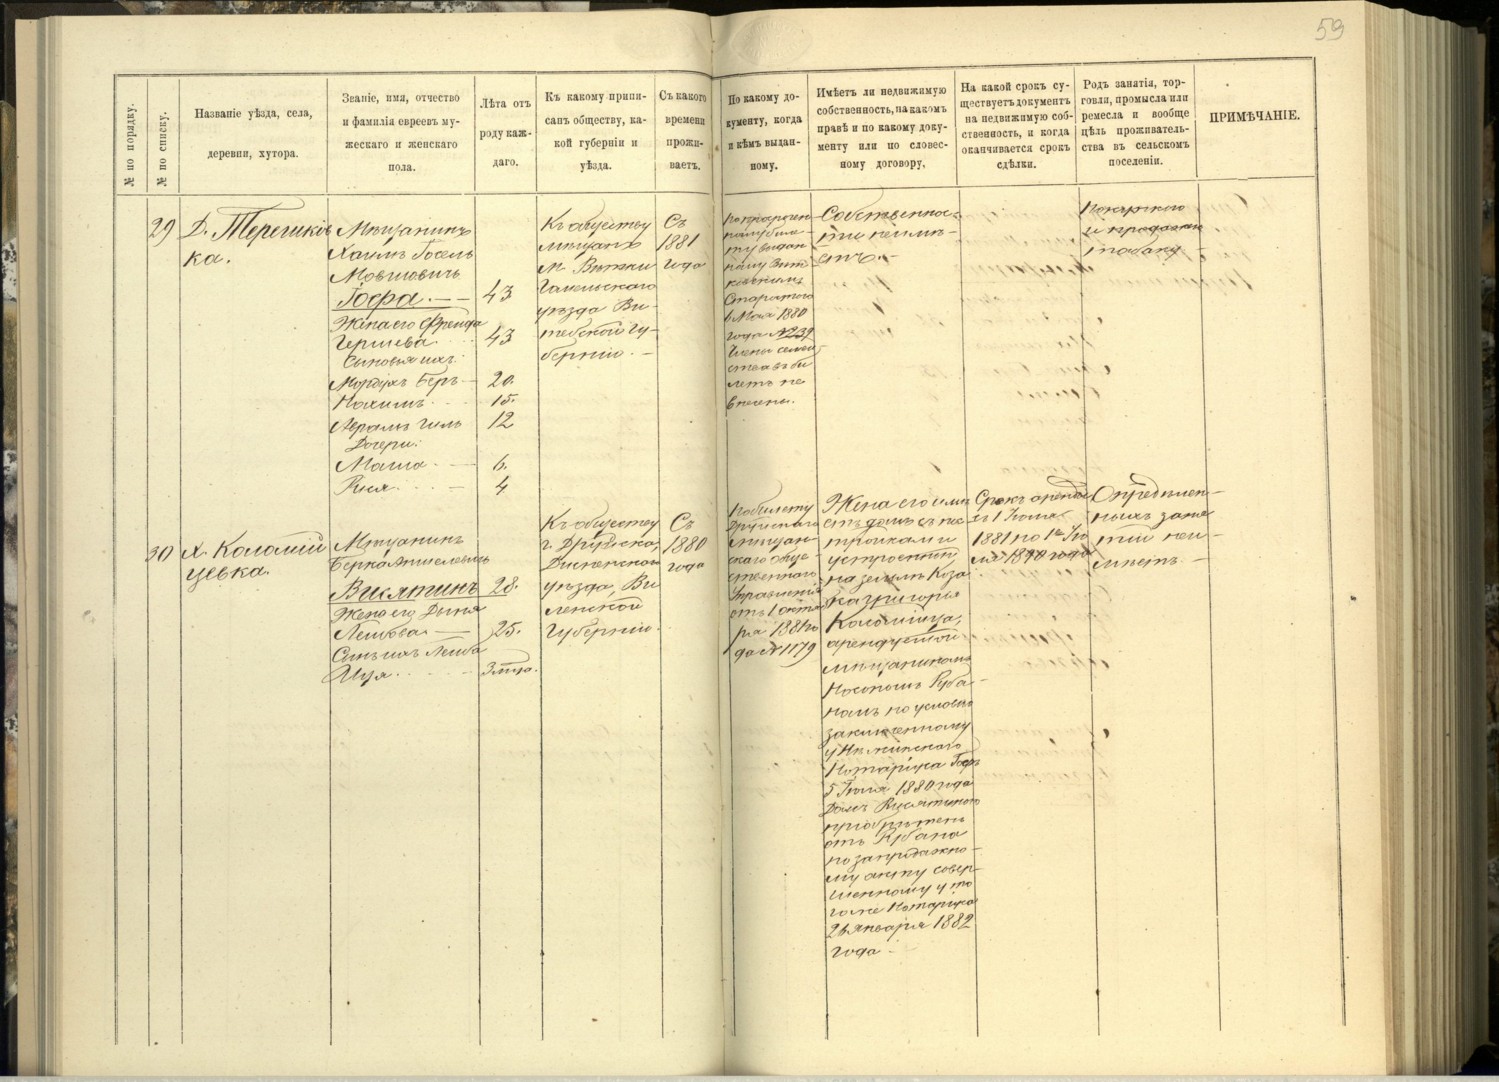 59
№ по порядку.
№ по списку.
Названіе уѣзда, села,
деревни, хутора.
Званіе, имя, отчество
и фамилія евреевъ му-
жескаго и женскаго
пола.
Лѣта отъ
роду каж-
даго.
Къ какому припи-
санъ обществу, ка-
кой губерніи и
уѣзда.
Съ какого
времени
прожи-
ваетъ.
По какому до-
кументу, когда
и кѣмъ выдан-
ному.
Имѣетъ ли недвижимую
собственность, на какомъ
правѣ и по какому доку-
менту или по словес-
ному договору,
На какой срокъ су-
ществуетъ документъ
на недвижимую соб-
ственность, и когда
оканчивается срокъ
сдѣлки.
Родъ занятія, тор-
говли, промысла или
ремесла и вообще
цѣль проживатель-
ства въ сельскомъ
поселеніи.
ПРИМѢЧАНІЕ.
29
Д. Терешков
ка.
Мѣщанинъ
Хаимъ Госель
Мовшовичъ
Гофа. 43
Жена его Фрейда
Гершева 43
Сыновья ихъ:
Мордухъ Беръ 20.
Нохимъ 15.
Абрамъ Гиль 12
Дочери:
Маша 6.
Рися 4
Къ обществу
мѣщанъ
м. Вѣтки
Гомельскаго
уѣзда Ви-
тебской гу-
берніи.
Съ
1881
года
ному биле-
ту выдан
ному Вѣт
ковскимъ
Старостою
6 Мая 1880
года № 239
Члены семей
ства въ би
летъ не
внесены.
Собственнос-
ти неимѣ-
етъ.
и продажи
табаку
30
Х. Коломій
цевка.
Мѣщанинъ
Берка
Висятинъ 28.
Жена его Дыня
Лейбова 25.
Сынъ ихъ Лейба
3 мѣс.
Къ обществу
г. Друйска,
Дисненскаго
уѣзда, Ви
ленской
Губерніи.
Съ
1880
года
По билету
Друйскаго
мѣщан-
скаго обще-
ственнаго
Управленія
отъ 1 октяб
ря 1881 го
да № 1179
Жена его имѣ
етъ домъ съ пос
тройками и
на землѣ Коза
ка Григорія
Коломійца,
арендуемой
мѣщаниномъ
Рубо-
номъ по условію
заключенному
у Нѣжинскаго
Нотаріуса
5 Іюля 1880 года
Домъ
пріобрѣтенъ
отъ Рубана
по запродажно-
му акту совер-
шенному у то
гоже Нотаріуса
26 Января 1882
года
Срокъ аренды
съ 1 Іюля
1881 по 1е Ію
ля 1890 года
Опредѣлен-
ныхъ заня
тій неи-
мѣетъ